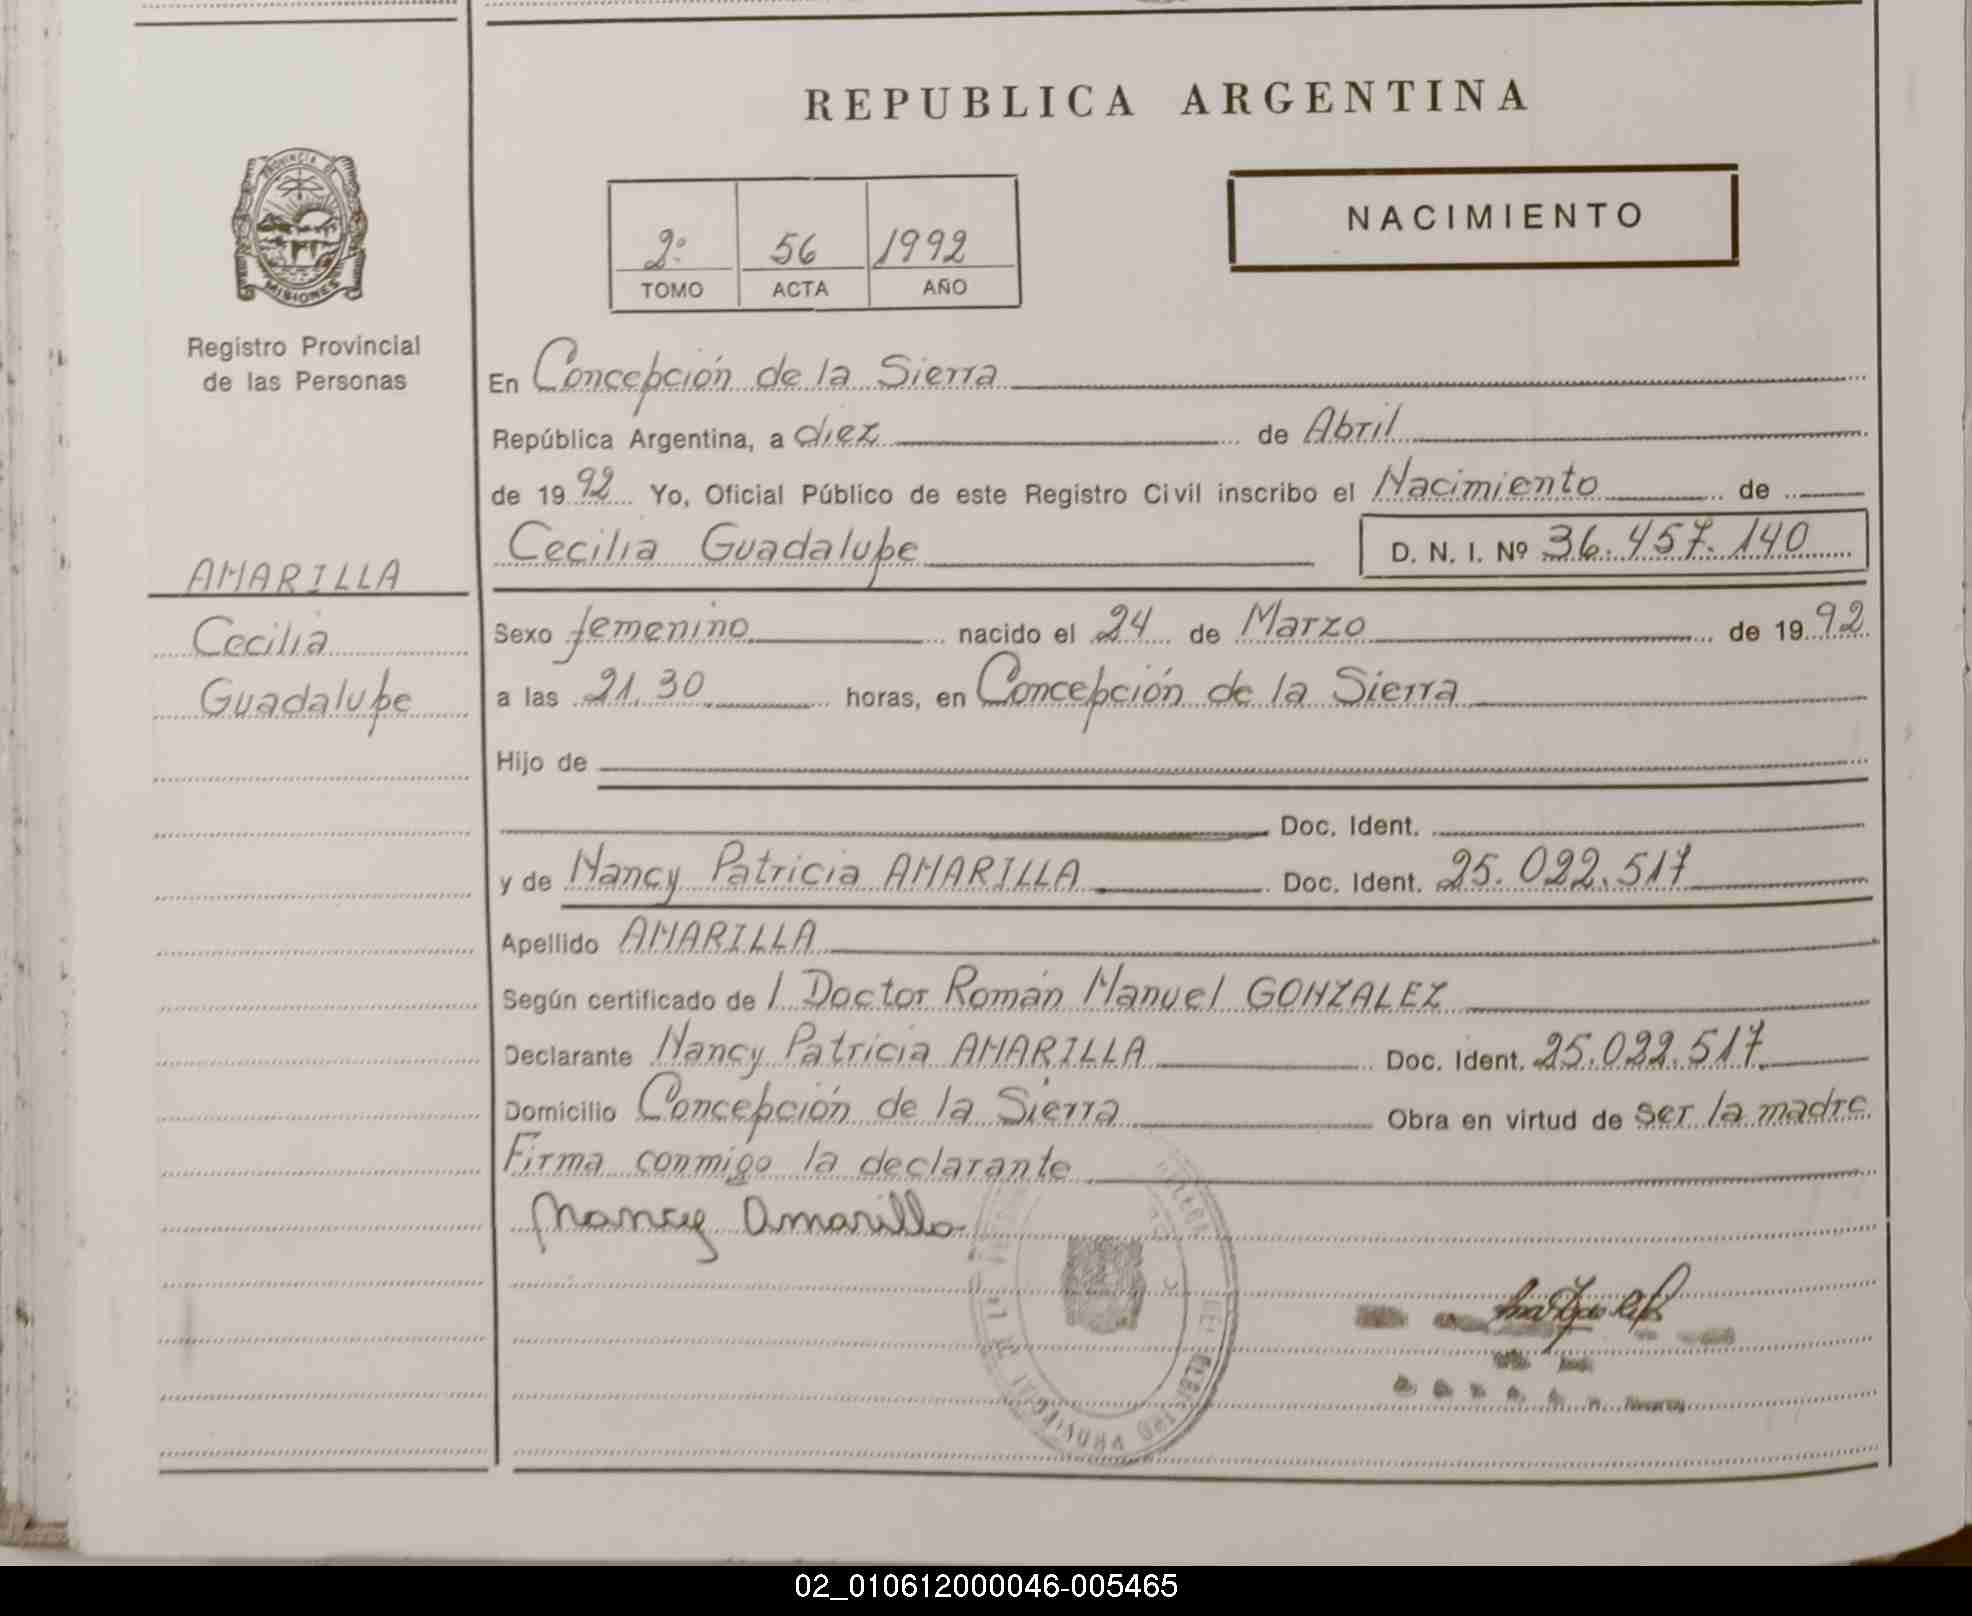 REPUBLICA ARGENTINA
PROVINCIA DE
MISIONES
Registro Provincial
de las Personas
2º 56 1992
TOMO ACTA AÑO
NACIMIENTO
En Concepción de la Sierra
República Argentina, a diez de Abril
de 1992 Yo, Oficial Público de este Registro Civil inscribo el Nacimiento de
Cecilia Guadalupe D. N. I. Nº 36.457.140
AMARILLA
Cecilia
Guadalupe
Sexo femenino nacido el 24 de Marzo de 1992
a las 21.30 horas, en Concepción de la Sierra
Hijo de
Doc. Ident.
y de Nancy Patricia AMARILLA Doc. Ident. 25.022.517
Apellido AMARILLA
Según certificado de l Doctor Román Manuel GONZALEZ
Declarante Nancy Patricia AMARILLA Doc. Ident. 25.022.517
Domicilio Concepción de la Sierra Obra en virtud de ser la madre
Firma conmigo la declarante
Nancy Amarilla
02_010612000046-005465